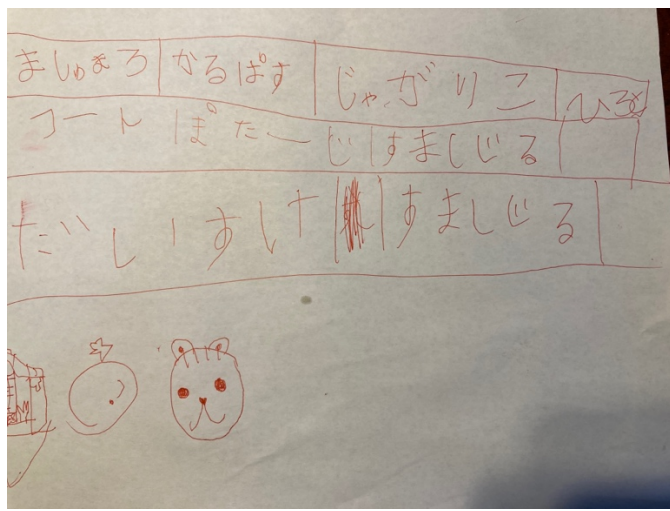 ましゅまろ かるぱす じゃがりこ
コーン ぽたーじ すましじる
だしいすけ すましじる